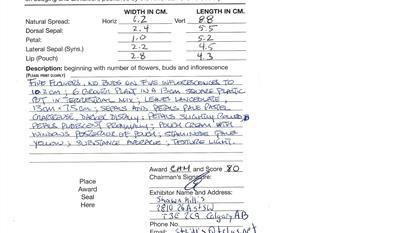 WIDTH IN CM. LENGTH IN CM.
Natural Spread: Horiz 6.2 Vert 8.8
Dorsal Sepal: 2.4 5.5
Petal: 1.0 5.2
Lateral Sepal (Syns.) 2.2 4.5
Lip (Pouch) 2.8 4.3
Description: beginning with number of flowers, buds and inflorescence
(PLEASE PRINT CLEARLY)
FIVE FLOWERS, NO BUDS ON FIVE INFLORESCENCES TO
10.2 CM; 6 GROWTH PLANT IN A 13CM SQUARE PLASTIC
POT IN TERRESTRIAL MIX; LEAVES LANCEOLATE,
13CM x 7.5CM; SEPALS AND PETALS PALE PASTEL
CHARTREUSE, DARKER DISTALLY; PETALS SLIGHTLY
PETALS PUBESCENT PROXIMALLY; POUCH CREAM WITH
WINDOWS POSTERIOR OF POUCH; STAMINODE PALE
YELLOW; SUBSTANCE AVERAGE; TEXTURE LIGHT.
Award CHM and Score 80
Chairman's Signature:
Place
Award
Seal
Here
Exhibitor Name and Address:
Shawn Hillis
2810 26A St SW
T3E 2C9 Calgary AB
Phone No.
Email: